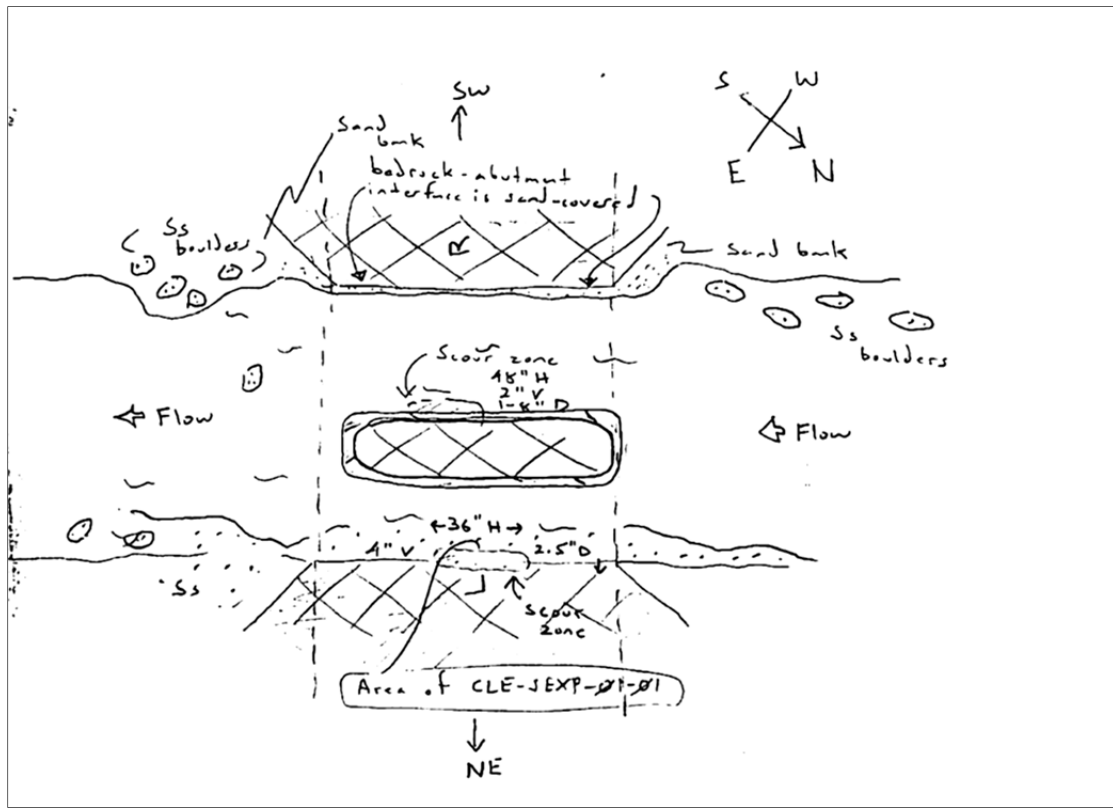 SW
S W
E N
Sand
bank
bedrock-abutment
interface is sand-covered
Ss
boulders
R
Sand bank
Ss
boulders
Scour zone
48" H
2" V
1-8" D
Flow
Flow
36" H
4" V
2.5" D
L
Ss
Scour
zone
Area of CLE-SEXP-01-01
NE